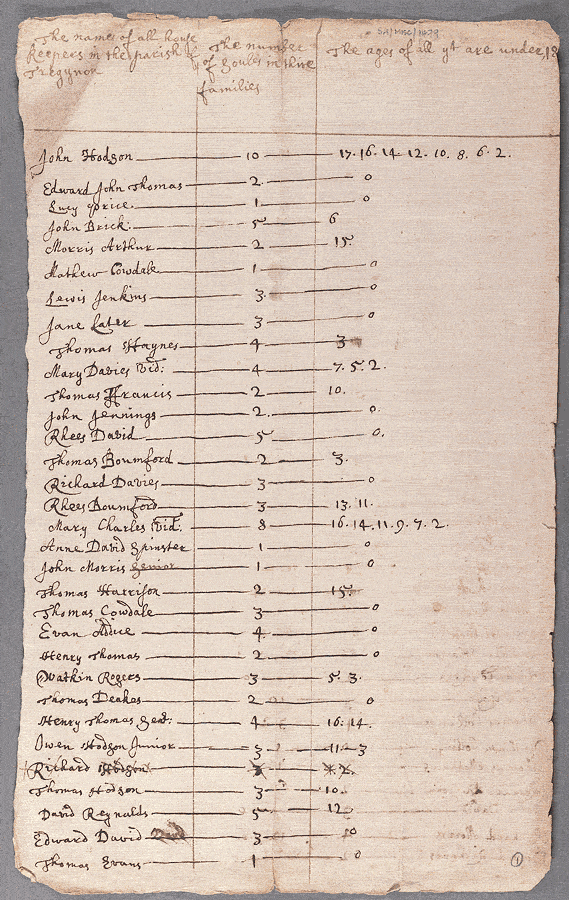 SA/MISC/1478
The names of all house
keepers in the parish of
Tregynon
The number
of Souls in thire
families
The ages of all yt are under 18
John Hodson 10 17. 16. 14 12. 10. 8. 6. 2.
Edward John Thomas 2. 0
Lucy Price 1 0
John Brick: 5 6
Morris Arthur 2 15.
Mathew Cowdale 1 0
Lewis Jenkins 3. 0
Jane Later 3 0
Thomas Haynes 4 3
Mary Davies Vid: 4 7. 5. 2.
Thomas Francis 2 10.
John Jennings 2. 0
Rhees David 5 0.
Thomas Boumford 2 3.
Richard Davies 3 0
Rhees Boumford 3 13. 11.
Mary Charles Vid: 8 16. 14. 11. 9. 7. 2.
Anne David Spinster 1 0
John Morris Senior 1 0
Thomas Harrison 2 15.
Thomas Cowdale 3 0
Evan 4. 0
Henry Thomas 2 0
Watkin Rogers 3 5. 3.
Thomas Deakas 2 0
Henry Thomas 4 16. 14.
Owen Hodson Junior 3 11. 3
Richard Hodson 2.
Thomas Hodson 3 10.
David Reynalds 5 12
Edward David 3 0
Thomas Evans 1 0
1